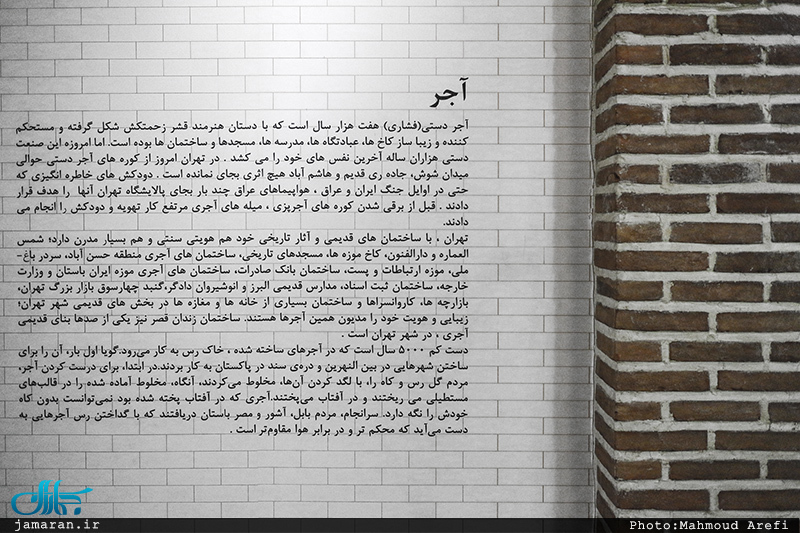 آجر
آجر دستی(فشاری) هفت هزار سال است که با دستان هنرمند قشر زحمتکش شکل گرفته و مستحکم
کننده و زیبا ساز کاخ ها، عبادتگاه ها، مدرسه ها، مسجدها و ساختمان ها بوده است. اما امروزه این صنعت
دستی هزاران ساله آخرین نفس های خود را می کشد . در تهران امروز از کوره های آجر دستی حوالی
میدان شوش، جاده ری قدیم و هاشم آباد هیچ اثری بجای نمانده است . دودکش های خاطره انگیزی که
حتی در اوایل جنگ ایران و عراق ، هواپیماهای عراق چند بار بجای پالایشگاه تهران آنها را هدف قرار
دادند . قبل از برقی شدن کوره های آجرپزی ، میله های آجری مرتفع کار تهویه و دودکش را انجام می
دادند.
تهران ، با ساختمان های قدیمی و آثار تاریخی خود هم هویتی سنتی و هم بسیار مدرن دارد؛ شمس
العماره و دارالفنون، کاخ موزه ها، مسجدهای تاریخی، ساختمان های آجری منطقه حسن آباد، سردر باغ-
ملی، موزه ارتباطات و پست، ساختمان بانک صادرات، ساختمان های آجری موزه ایران باستان و وزارت
خارجه، ساختمان ثبت اسناد، مدارس قدیمی البرز و انوشیروان دادگر،گنبد چهارسوق بازار بزرگ تهران،
بازارچه ها، کاروانسراها و ساختمان بسیاری از خانه ها و مغازه ها در بخش های قدیمی شهر تهران؛
زیبایی و هویت خود را مدیون همین آجرها هستند. ساختمان زندان قصر نیز یکی از صدها بنای قدیمی
آجری ، در شهر تهران است .
دست کم ۵۰۰۰ سال است که در آجرهای ساخته شده ، خاک رس به کار می‌رود.گویا اول بار، آن را برای
ساختن شهرهایی در بین النهرین و دره‌ی سند در پاکستان به کار بردند.در ابتدا، برای درست کردن آجر،
مردم گل رس و کاه را، با لگد کردن آن‌ها، مخلوط می‌کردند، آنگاه، مخلوط آماده شده را در قالب‌های
مستطیلی می ریختند و در آفتاب می‌پختند.آجری که در آفتاب پخته شده بود نمی‌توانست بدون کاه
خودش را نگه دارد. سرانجام، مردم بابل، آشور و مصر باستان دریافتند که با گداختن رس آجرهایی به
دست می‌آید که محکم تر و در برابر هوا مقاوم‌تر است .
جماران
jamaran.ir
Photo:Mahmoud Arefi